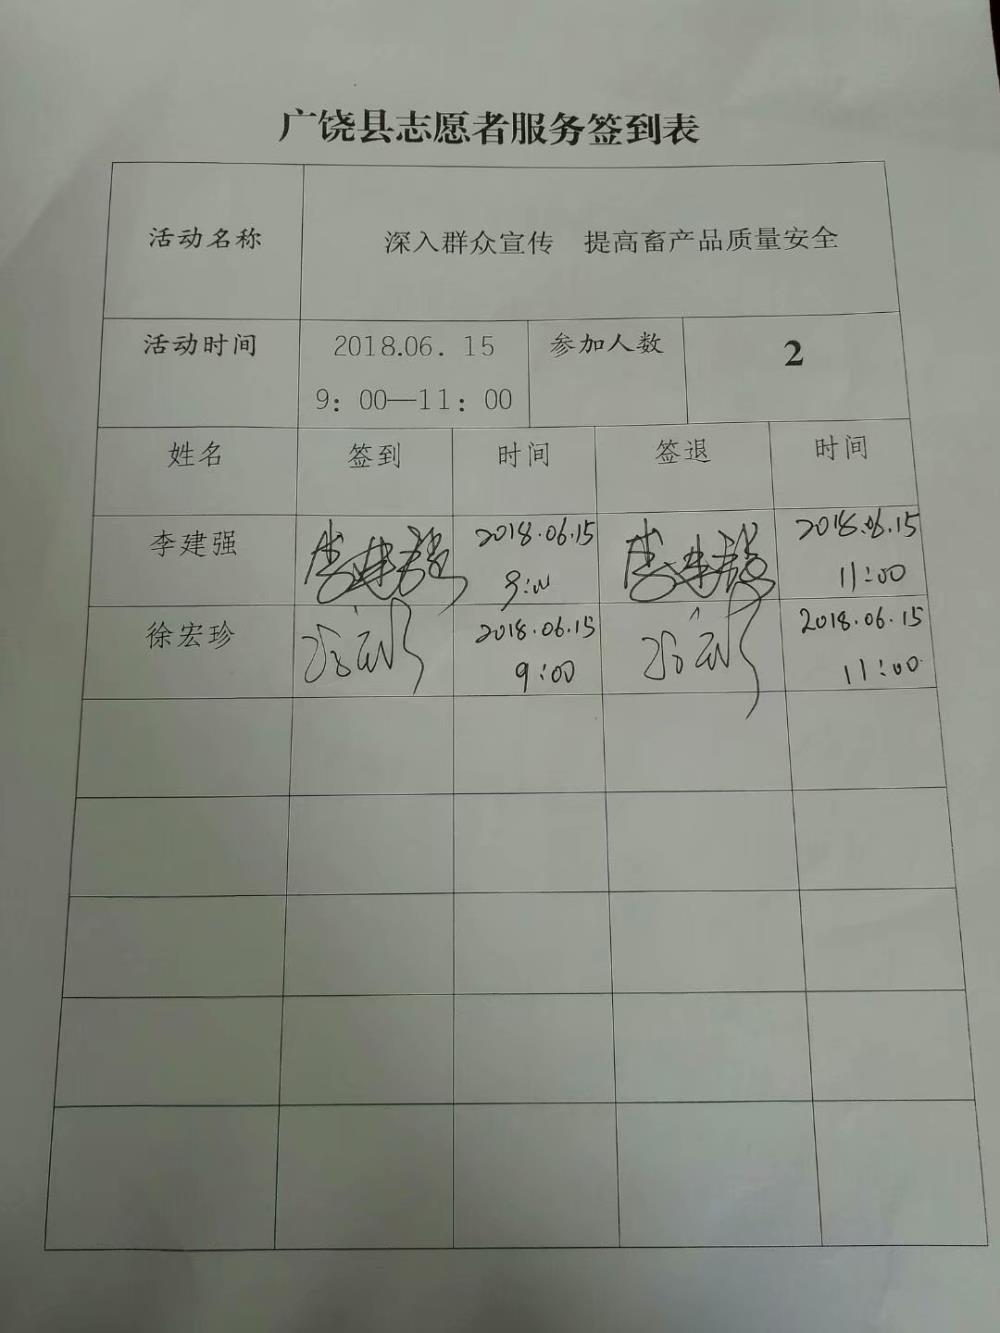 广饶县志愿者服务签到表
活动名称
深入群众宣传 提高畜产品质量安全
活动时间
2018.06. 15
9: 00—11: 00
参加人数
2
姓名 签到 时间 签退 时间
李建强 李建强 2018.06.15 李建强 2018.06.15
9:00 11:00
徐宏珍 2018.06.15 2018.06.15
9:00 11:00